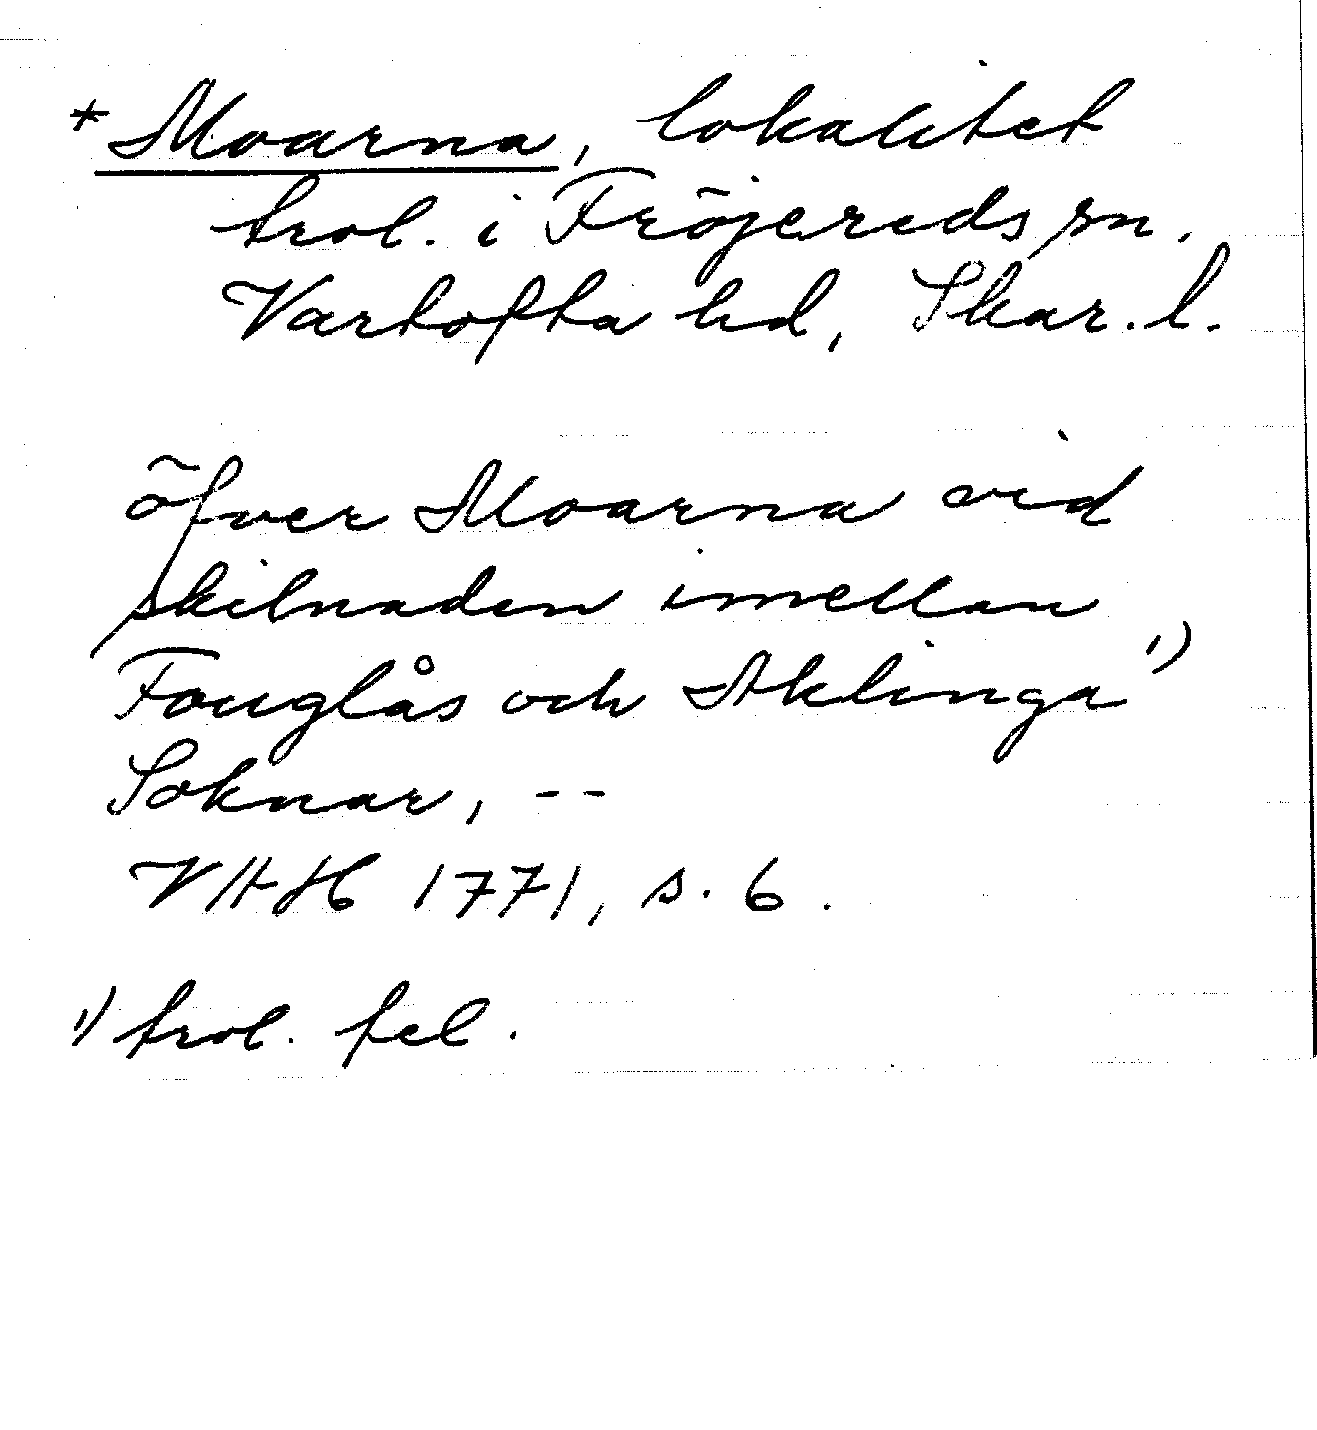 * Moarna, lokalitet
trol. i Fröjereds sn.
Vartofta hd, Skar. l.
öfver Moarna vid
skilnaden imellan
Fouglås och Aklinga 1)
Soknar, --
VHH 1771, s. 6.
1) trol. fel.